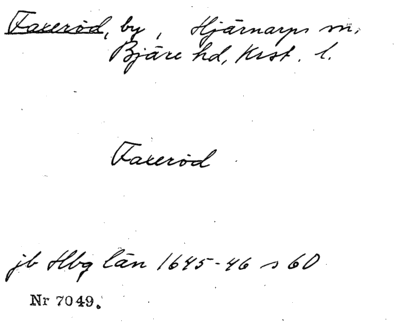 Faxeröd, by, Hjärnarps sn,
Bjäre hd, Krist. l.
Faxeröd
jb Hbg län 1645-46 s 60
Nr 7049.